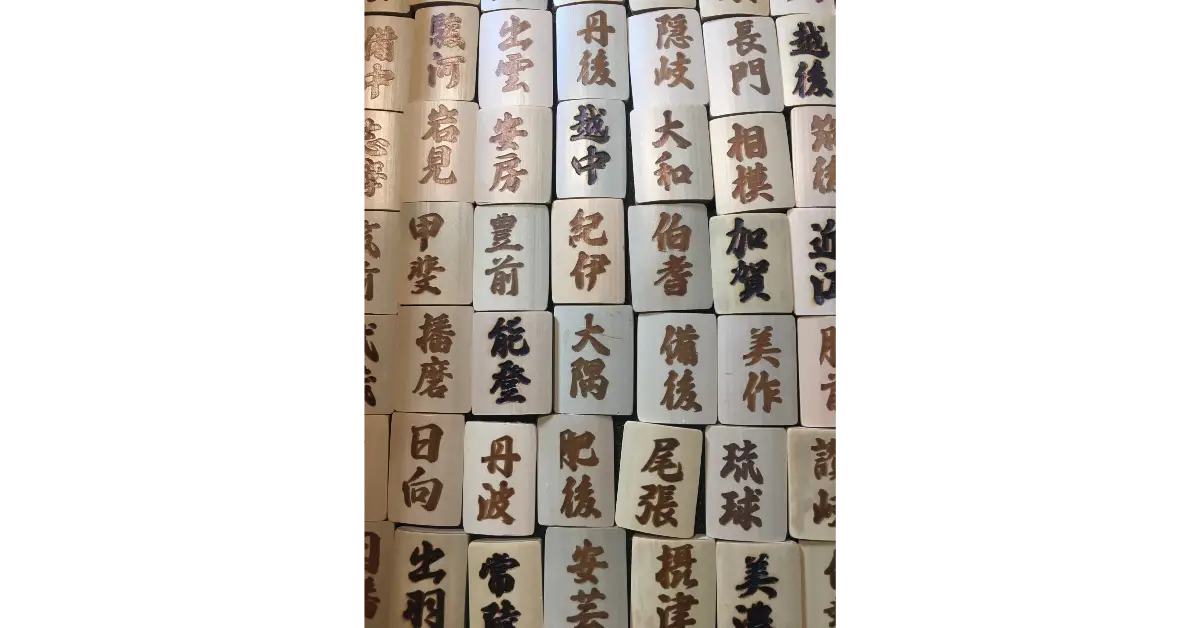 備中
駿河
出雲
丹後
隠岐
長門
越後
岩見
安房
越中
大和
相模
筑後
甲斐
豊前
紀伊
伯耆
加賀
近江
播磨
能登
大隅
備後
美作
日向
丹波
肥後
尾張
琉球
讃岐
出羽
常陸
安芸
摂津
美濃